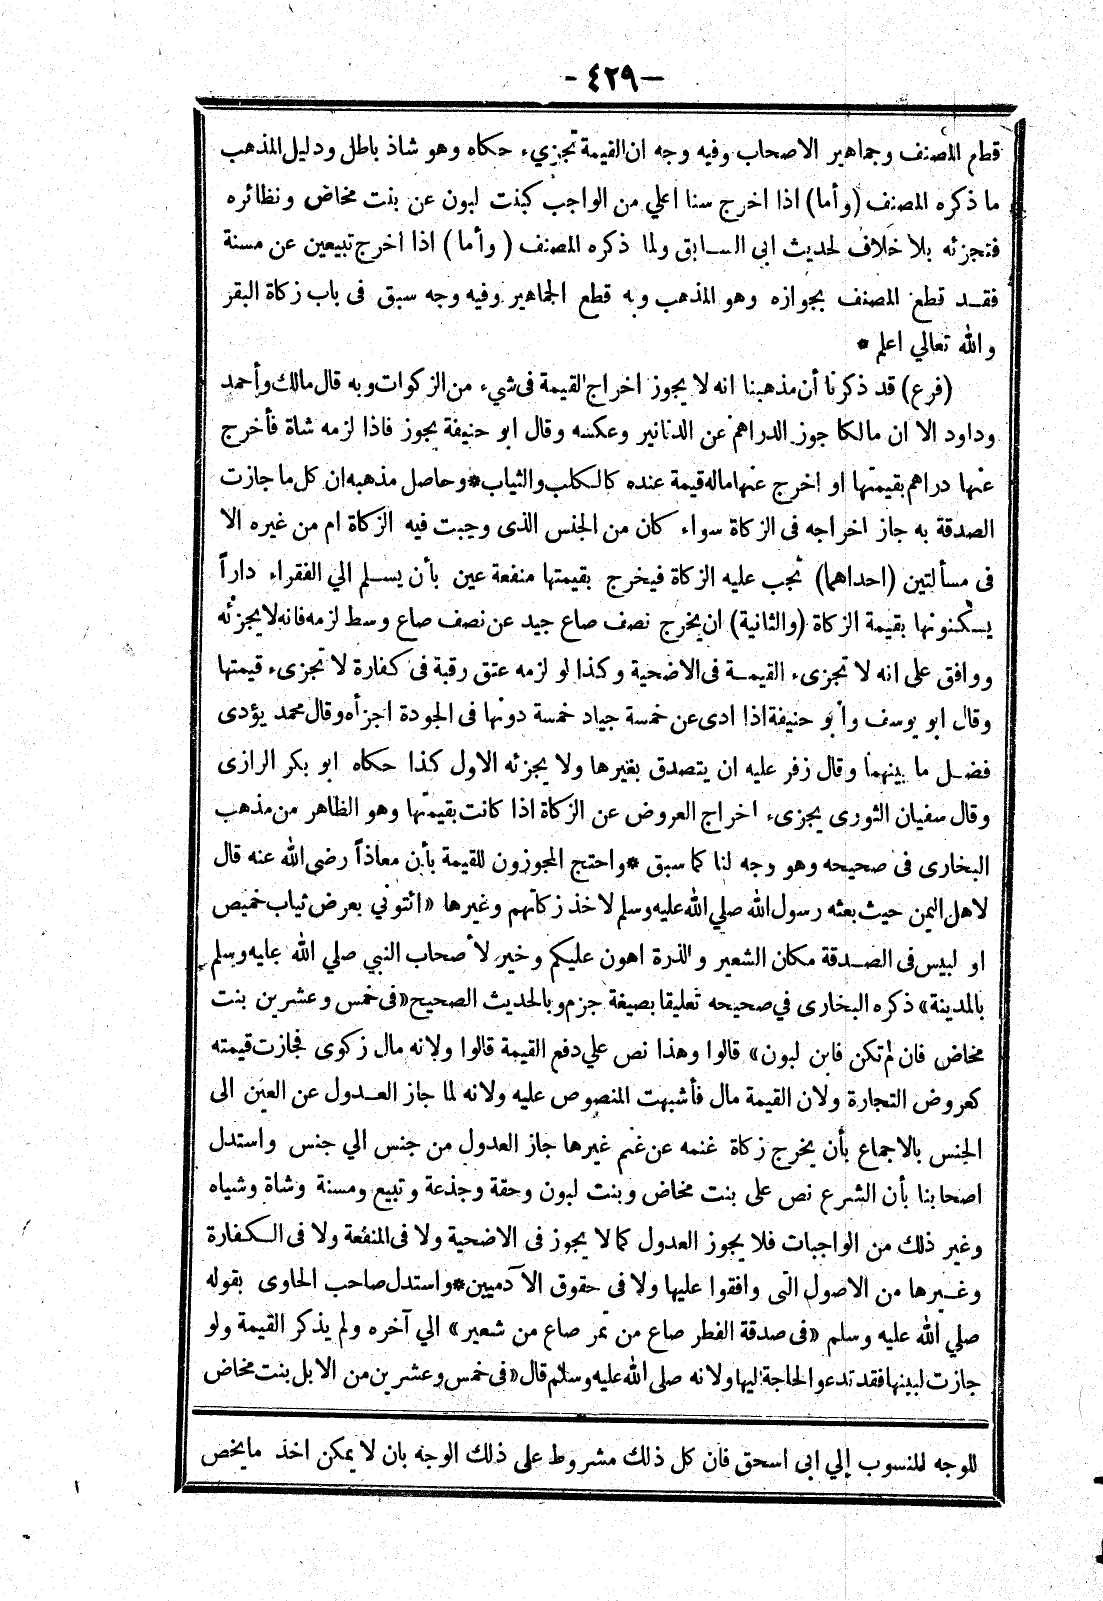 -٤٢٩-
قطع المصنف وجماهير الاصحاب وفيه وجه ان القيمة تجزيء حكاه وهو شاذ باطل ودليل المذهب
ما ذكره المصنف (وأما) اذا اخرج سنا اعلي من الواجب كبنت لبون عن بنت مخاض ونظائره
فتجزئه بلا خلاف لحديث ابى السابق ولما ذكره المصنف (وأما) اذا اخرج تبيعين عن مسنة
فقد قطع المصنف بجوازه وهو المذهب وبه قطع الجماهير وفيه وجه سبق فى باب زكاة البقر
والله تعالي اعلم *
(فرع) قد ذكرنا أن مذهبنا انه لا يجوز اخراج القيمة فى شيء من الزكوات وبه قال مالك وأحمد
وداود الا ان مالكا جوز الدراهم عن الدنانير وعكسه وقال ابو حنيفة يجوز فاذا لزمه شاة فأخرج
عنها دراهم بقيمتها او اخرج عنها ماله قيمة عنده كالكلب والثياب * وحاصل مذهبه ان كل ما جازت
الصدقة به جاز اخراجه فى الزكاة سواء كان من الجنس الذى وجبت فيه الزكاة ام من غيره الا
فى مسألتين (احداهما) تجب عليه الزكاة فيخرج بقيمتها منفعة عين بأن يسلم الي الفقراء داراً
يسكنونها بقيمة الزكاة (والثانية) ان يخرج نصف صاع جيد عن نصف صاع وسط لزمه فانه لا يجزئه
ووافق على انه لا تجزىء القيمة فى الاضحية وكذا لو لزمه عتق رقبة فى كفارة لا تجزىء قيمتها
وقال ابو يوسف وأبو حنيفة اذا ادى عن خمسة جياد خمسة دونها فى الجودة اجزأه وقال محمد يؤدى
فضل ما بينهما وقال زفر عليه ان يتصدق بغيرها ولا يجزئه الاول كذا حكاه ابو بكر الرازى
وقال سفيان الثورى يجزىء اخراج العروض عن الزكاة اذا كانت بقيمتها وهو الظاهر من مذهب
البخارى فى صحيحه وهو وجه لنا كما سبق * واحتج المجوزون للقيمة بأن معاذاً رضى الله عنه قال
لاهل اليمن حيث بعثه رسول الله صلي الله عليه وسلم لاخذ زكاتهم وغيرها «ائتوني بعرض ثياب خميص
او لبيس فى الصدقة مكان الشعير والذرة اهون عليكم وخير لأصحاب النبي صلي الله عليه وسلم
بالمدينة» ذكره البخارى في صحيحه تعليقا بصيغة جزم وبالحديث الصحيح «فى خمس وعشرين بنت
مخاض فان لم تكن فابن لبون» قالوا وهذا نص علي دفع القيمة قالوا ولانه مال زكوى فجازت قيمته
كعروض التجارة ولان القيمة مال فأشبهت المنصوص عليه ولانه لما جاز العدول عن العين الى
الجنس بالاجماع بأن يخرج زكاة غنمه عن غنم غيرها جاز العدول من جنس الي جنس واستدل
اصحابنا بأن الشرع نص على بنت مخاض وبنت لبون وحقة وجذعة وتبيع ومسنة وشاة وشياه
وغير ذلك من الواجبات فلا يجوز العدول كما لا يجوز فى الاضحية ولا فى المنفعة ولا فى الكفارة
وغيرها من الاصول التى وافقوا عليها ولا فى حقوق الآدميين * واستدل صاحب الحاوى بقوله
صلي الله عليه وسلم «فى صدقة الفطر صاع من تمر صاع من شعير» الي آخره ولم يذكر القيمة ولو
جازت لبينها فقد تدعو الحاجة اليها ولانه صلى الله عليه وسلم قال «فى خمس وعشرين من الابل بنت مخاض
للوجه المنسوب إلي ابى اسحق فان كل ذلك مشروط على ذلك الوجه بان لا يمكن اخذ ما يخص